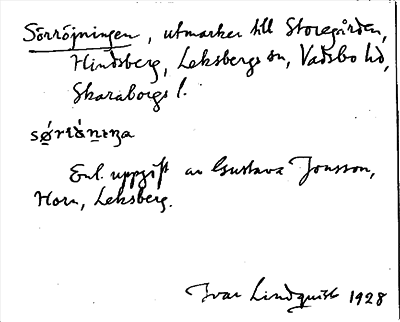 Sörröjningen, utmarker till Storegården,
Hindsberg, Leksbergs sn, Vadsbo hd,
Skaraborgs l.
Enl. uppgift av Gustava Jonsson,
Horn, Leksberg.
Ivar Lindquist 1928